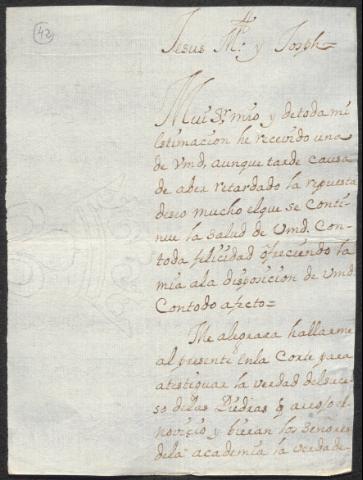 42
Jesus Ma. y Joseph=
Mui Sr. mio y detoda mi
estimacion he recevido una
de Vmd, aunque tarde causa
de aber retardado la repuesta
deseo mucho elque se Conti
nue la salud de Vmd. Con
toda felicidad ofreciendo la
mia ala disposicion de Vmd.
Contodo afecto=
Me alegrara hallarme
al presente enla Corte para
atestiguar la verdad delsuce
so delas Piedras q arrojo el
novicio y bieran los Senores
dela academia la verdad e